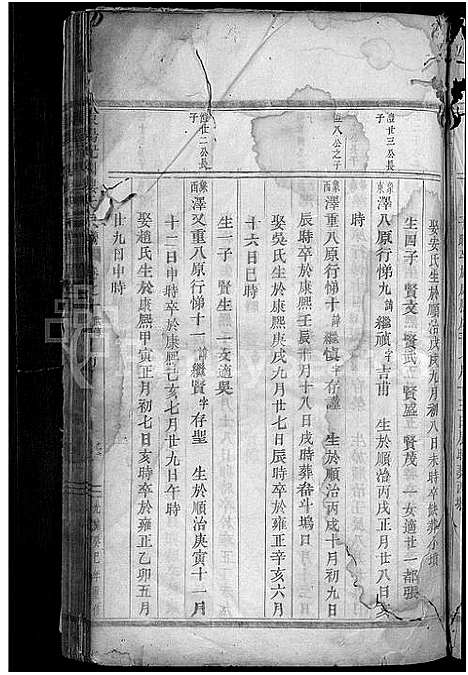 娶安氏生於順治庚戌九月初八日未時卒缺葬小墳
生四子 賢文 賢武 賢盛 賢茂 一女適廿一都張
澄廿三公長子
象東 澤八原行悌九 諱繼禎 字吉甫 生於順治丙戌正月廿八日亥
時
澄八公之子
象西 澤重八原行悌十 諱繼慎 字存謹 生於順治丙戌十月初九日
辰時卒於康熙壬辰十月十八日戌時葬畚斗塢口
娶吳氏生於康熙庚戌九月廿一日辰時卒於雍正辛亥六月
十六日巳時
生二子 賢生 一女適吳
澄廿二公長子
象西 澤又重八原行悌十一 諱繼賢 字存聖 生於順治庚寅十一月
十二日申時卒於康熙己亥七月廿九日午時
娶趙氏生於康熙甲寅正月初七日亥時卒於雍正乙卯五月
廿九日申時